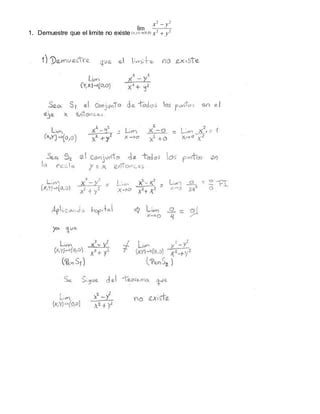 1. Demuestre que el limite no existe lim (x,y)→(0,0) x² − y² / x² + y²
1) Demuestre que el limite no existe
Lim (x,y)→(0,0) x² − y² / x² + y²
Sea S₁ el conjunto de todos los puntos en el
eje x entonces
Lim (x,y)→(0,0) x² − y² / x² + y² = Lim x→0 x² − 0 / x² + 0 = Lim x→0 x² / x² = 1
Sea S₂ el conjunto de todos los puntos en
la recta y = x entonces
Lim (x,y)→(0,0) x² − y² / x² + y² = Lim x→0 x² − x² / x² + x² = Lim x→0 0 / 2x² = 0 / 0
Aplicando hopital ⇒ Lim x→0 0 / 4 = 0
ya que
Lim (x,y)→(0,0) x² − y² / x² + y² ≠ Lim (x,y)→(0,0) x² − y² / x² + y²
(P en S₁) (P en S₂)
Se sigue del teorema que
Lim (x,y)→(0,0) x² − y² / x² + y² no existe